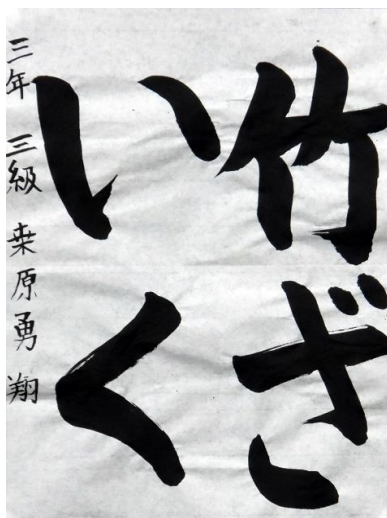 竹ざ
いく
三年 三級 桒原勇翔